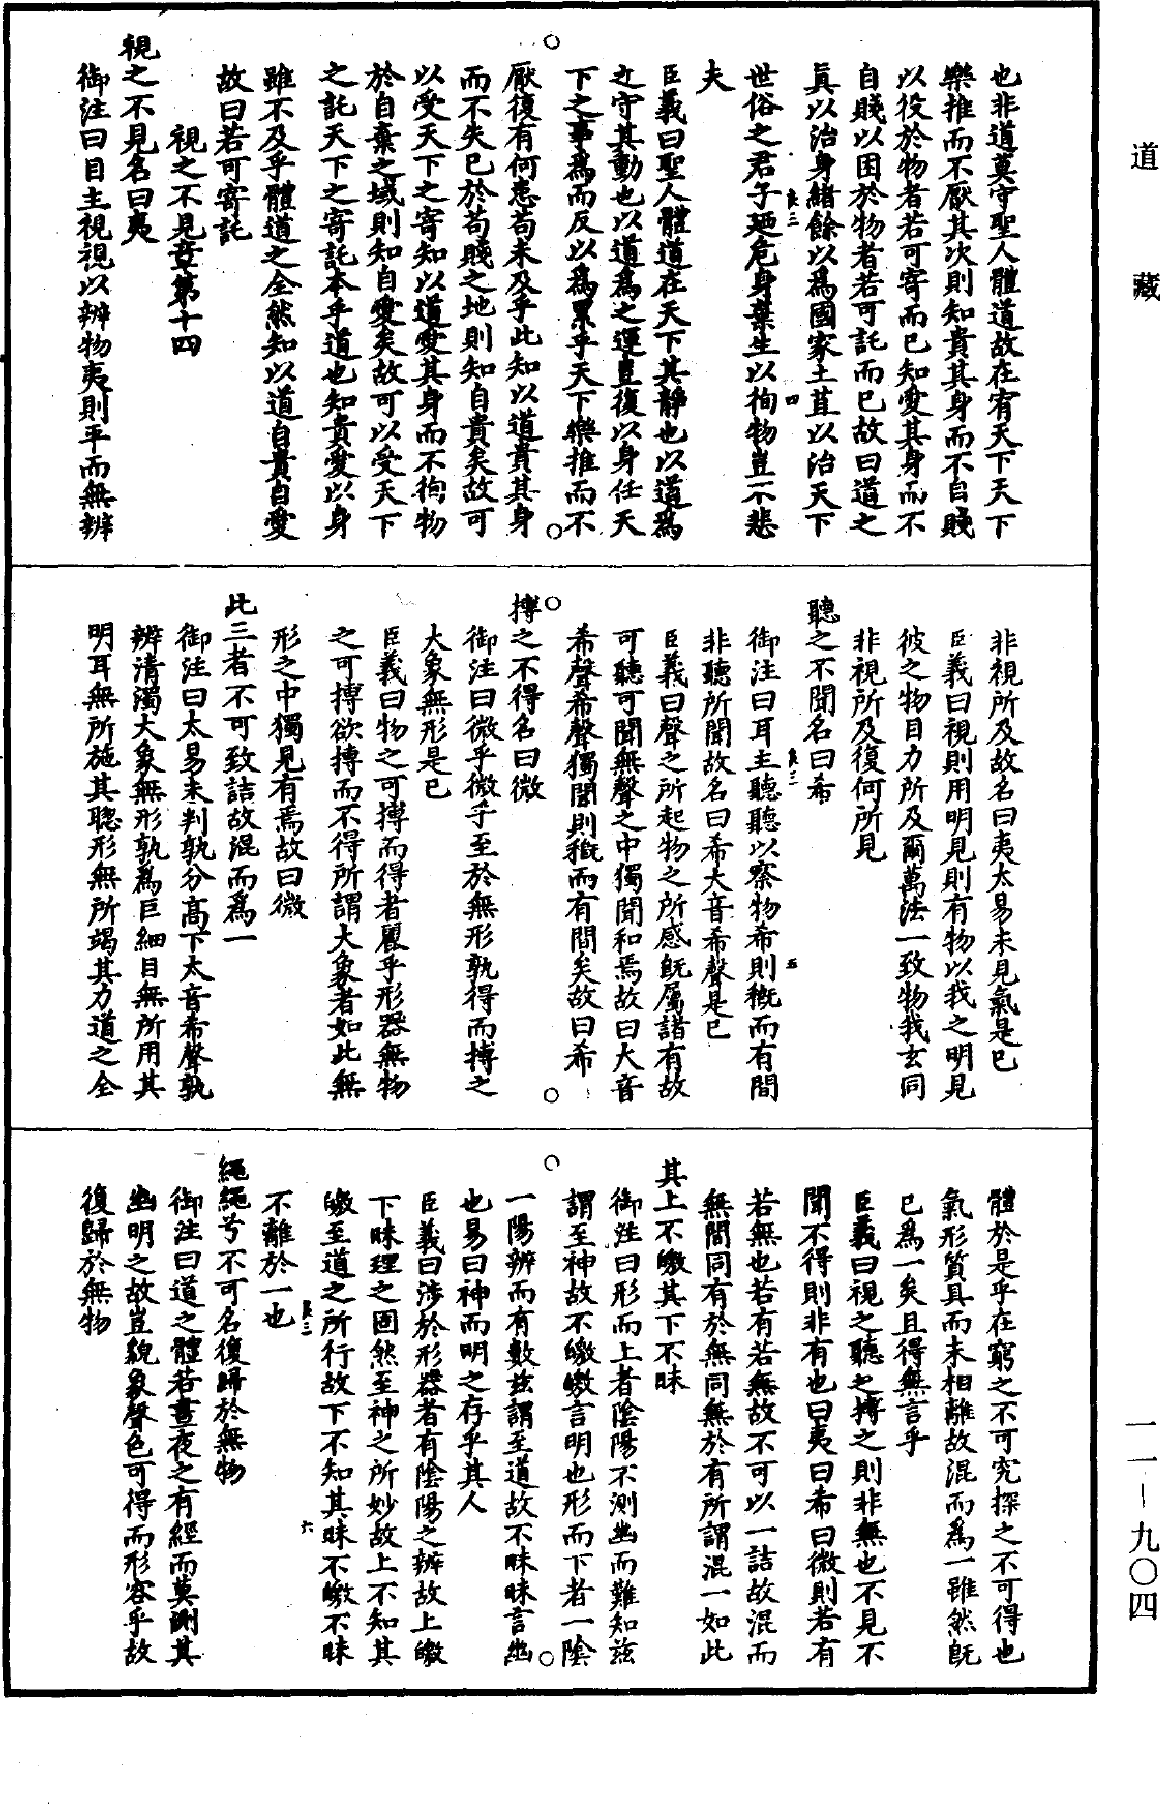 道藏
也非道莫守聖人體道故在宥天下天下
樂推而不厭其次則知貴其身而不自賤
以役於物者若可寄而已知愛其身而不
自賤以困於物者若可託而已故曰道之
眞以治身緒餘以爲國家土苴以治天下
世俗之君子廼危身棄生以徇物豈不悲
夫
臣義曰聖人體道在天下其靜也以道爲
之守其動也以道爲之運豈復以身任天
下之事爲而反以爲累乎天下樂推而不
厭復有何患苟未及乎此知以道貴其身
而不失已於苟賤之地則知自貴矣故可
以受天下之寄知以道愛其身而不拘物
於自棄之域則知自愛矣故可以受天下
之託天下之寄託本乎道也知貴愛以身
雖不及乎體道之全然知以道自貴自愛
故曰若可寄託
視之不見章第十四
視之不見名曰夷
御注曰目主視視以辨物夷則平而無辨
非視所及故名曰夷太易未見氣是已
臣義曰視則用明見則有物以我之明見
彼之物目力所及爾萬法一致物我玄同
非視所及復何所見
聽之不聞名曰希
御注曰耳主聽聽以察物希則槪而有間
非聽所聞故名曰希大音希聲是已
臣義曰聲之所起物之所感旣屬諸有故
可聽可聞無聲之中獨聞和焉故曰大音
希聲希聲獨聞則槪而有間矣故曰希
搏之不得名曰微
御注曰微乎微乎至於無形孰得而搏之
大象無形是已
臣義曰物之可搏而得者麗乎形器無物
之可搏欲搏而不得所謂大象者如此無
形之中獨見有焉故曰微
此三者不可致詰故混而爲一
御注曰太易未判孰分高下大音希聲孰
辨清濁大象無形孰爲巨細目無所用其
明耳無所施其聰形無所竭其力道之全
體於是乎在窮之不可究探之不可得也
氣形質具而未相離故混而爲一雖然旣
已爲一矣且得無言乎
臣義曰視之聽之搏之則非無也不見不
聞不得則非有也曰夷曰希曰微則若有
若無也若有若無故不可以一詰故混而
無間同有於無同無於有所謂混一如此
其上不皦其下不昧
御注曰形而上者陰陽不測幽而難知茲
謂至神故不皦皦言明也形而下者一陰
一陽辨而有數茲謂至道故不昧昧言幽
也易曰神而明之存乎其人
臣義曰涉於形器者有陰陽之辨故上皦
下昧理之固然至神之所妙故上不知其
皦至道之所行故下不知其昧不皦不昧
不離於一也
繩繩兮不可名復歸於無物
御注曰道之體若晝夜之有經而莫測其
幽明之故豈貌象聲色可得而形容乎故
復歸於無物
一一—九〇四